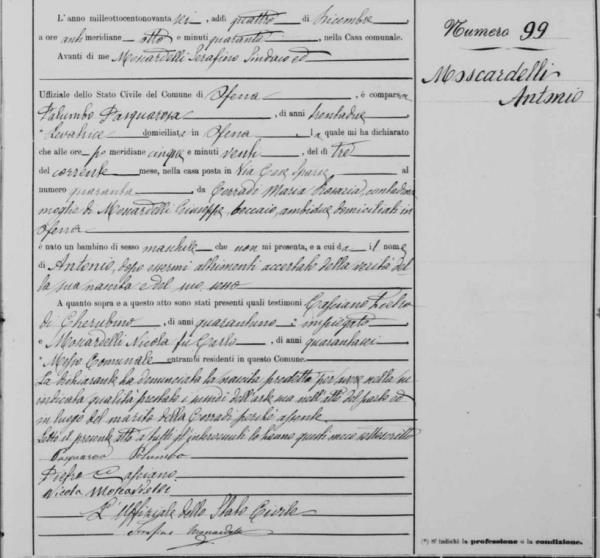 L'anno milleottocentonovantasei, addì quattro di Dicembre
a ore anti meridiane otto e minuti quaranta, nella Casa comunale.
Avanti di me Moscardelli Serafino Sindaco ed
Uffiziale dello Stato Civile del Comune di Ofena, è comparsa
Palumbo Pasquarosa, di anni trentadue
* Levatrice domiciliata in Ofena, la quale mi ha dichiarato
che alle ore po meridiane cinque e minuti venti, del dì tre
del corrente mese, nella casa posta in Via Case Sparse al
numero quaranta, da Corradi Maria Rosaria, contadina
moglie di Moscardelli Giuseppe, beccaio, ambidue domiciliati in
Ofena
è nato un bambino di sesso maschile che non mi presenta, e a cui dà il nome
di Antonio, dopo essermi altrimenti accertato della verità del
la sua nascita e del suo sesso
A quanto sopra e a questo atto sono stati presenti quali testimoni Cassiano Pietro
di Cherubino, di anni quarantuno * impiegato
e Moscardelli Nicola fu Carlo, di anni quarantasei
* Messo Comunale entrambi residenti in questo Comune.
La dichiarante ha denunciata la nascita predetta per avere nella su
indicata qualità prestato i rimedi dell'arte sua nell'atto del parto ed
in luogo del marito della Corradi perchè assente
Letto il presente atto a tutti gl'intervenuti lo hanno questi meco sottoscritto
Pasquarosa Palumbo
Pietro Cassiano
Nicola Moscardelli
L'Uffiziale dello Stato Civile
Serafino Moscardelli
Numero 99
Moscardelli
Antonio
(*) Si indichi la professione o la condizione.